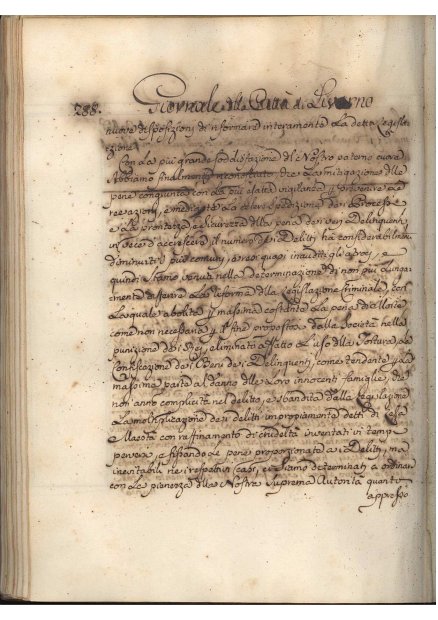 288. Giornale della Città di Livorno
nuove disposizioni di riformare interamente la detta Legisla-
zione.
Con la più grande sodisfazione del Nostro paterno cuore
Abbiamo finalmente riconosciuto, che la mitigazione delle
pene congiunta con la più esatta vigilanza p prevenire le
reazioni, e mediante la celere spedizione dei Processi
e la prontezza e sicurezza della pena dei veri Delinquenti,
in vece d'accrescere il numero dei Delitti ha considerabilmte
diminuiti i più comuni, e resi quasi inauditi gli atroci, e
quindi Siamo venuti nella determinazione di non più lunga-
mente differire la Riforma della Legislazione Criminale, con
la quale abolita p massima costante la pena di Morte
come non necessaria p il fine propostosi dalla Società nella
punizione dei Rei, eliminato affatto l'uso della Tortura, la
Confiscazione dei Beni dei Delinquenti, come tendente p la
massima parte al danno delle loro innocenti famiglie, che
non anno complicità nel delitto, e sbandita dalla Legislazione
la moltiplicazione dei delitti impropriamente detti di Lesa
Maestà con raffinamento di crudeltà inventati in tempi
perversi, e fissando le pene proporzionate ai Delitti, ma
inevitabili nei respettivi Casi, ci Siamo determinati a ordinar
con la pienezza della Nostra Suprema Autorità quanto
appresso